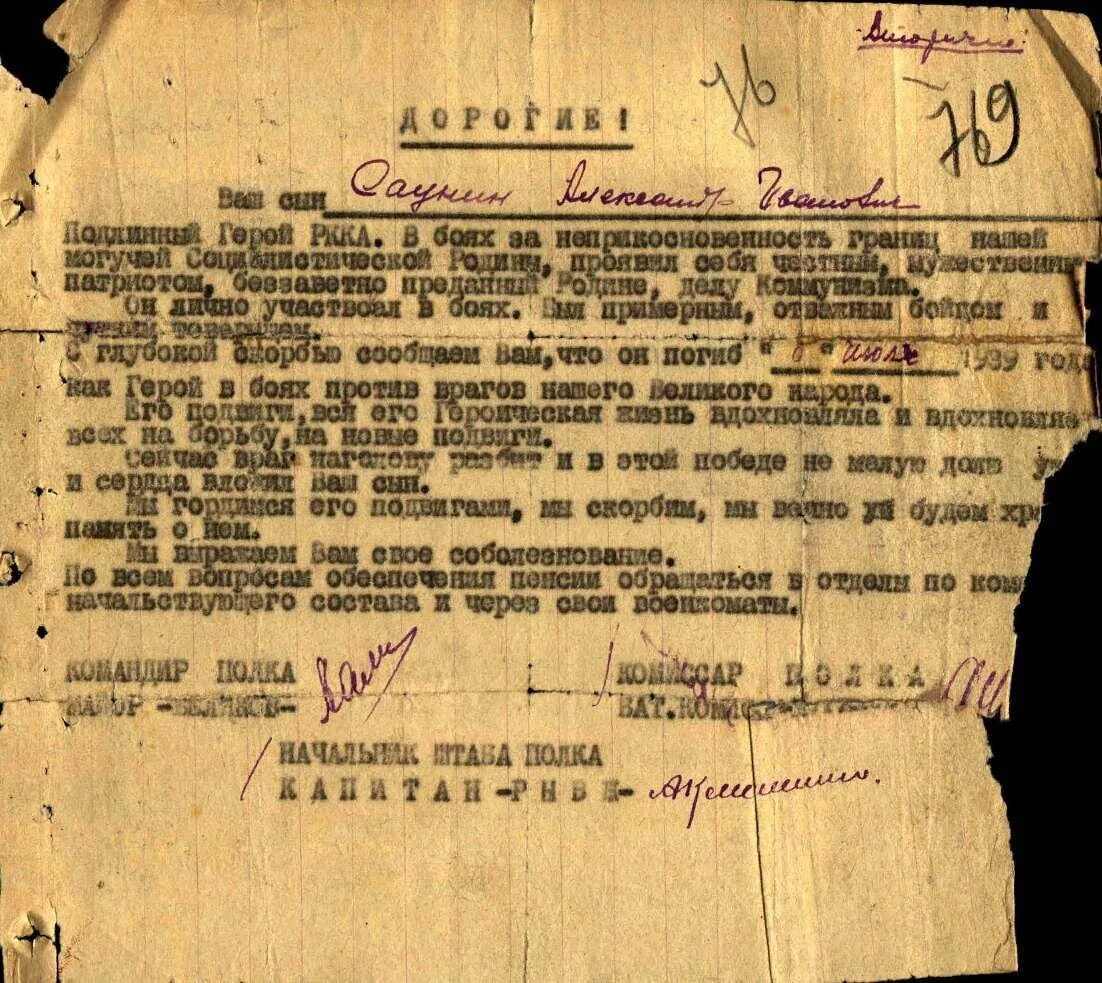 Вторично.
76
769
ДОРОГИЕ!
Ваш сын Саунин Александр Иванович
Подлинный Герой РККА. В боях за неприкосновенность границ нашей
могучей Социалистической Родины, проявил себя честным, мужественны
патриотом, беззаветно преданный Родине, делу Коммунизма.
Он лично участвовал в боях. Был примерным, отважным бойцом и
лучшим товарищем.
С глубокой скорбью сообщаем Вам, что он погиб " 6 " июля 1939 года
как Герой в боях против врагов нашего Великого народа.
Его подвиги, вся его Героическая жизнь вдохновляла и вдохновляе
всех на борьбу, на новые подвиги.
Сейчас враг наголову разбит и в этой победе не малую долю
и сердца вложил Ваш сын.
Мы гордимся его подвигами, мы скорбим, мы вечно будем хра
память о нем.
Мы выражаем Вам свое соболезнование.
По всем вопросам обеспечения пенсии обращаться в отделы по ком
начальствующего состава и через свои военкоматы.
КОМАНДИР ПОЛКА КОМИССАР ПОЛКА
МАЙОР -БЕЛЯКОВ- БАТ.КОМИС
НАЧАЛЬНИК ШТАБА ПОЛКА
КАПИТАН